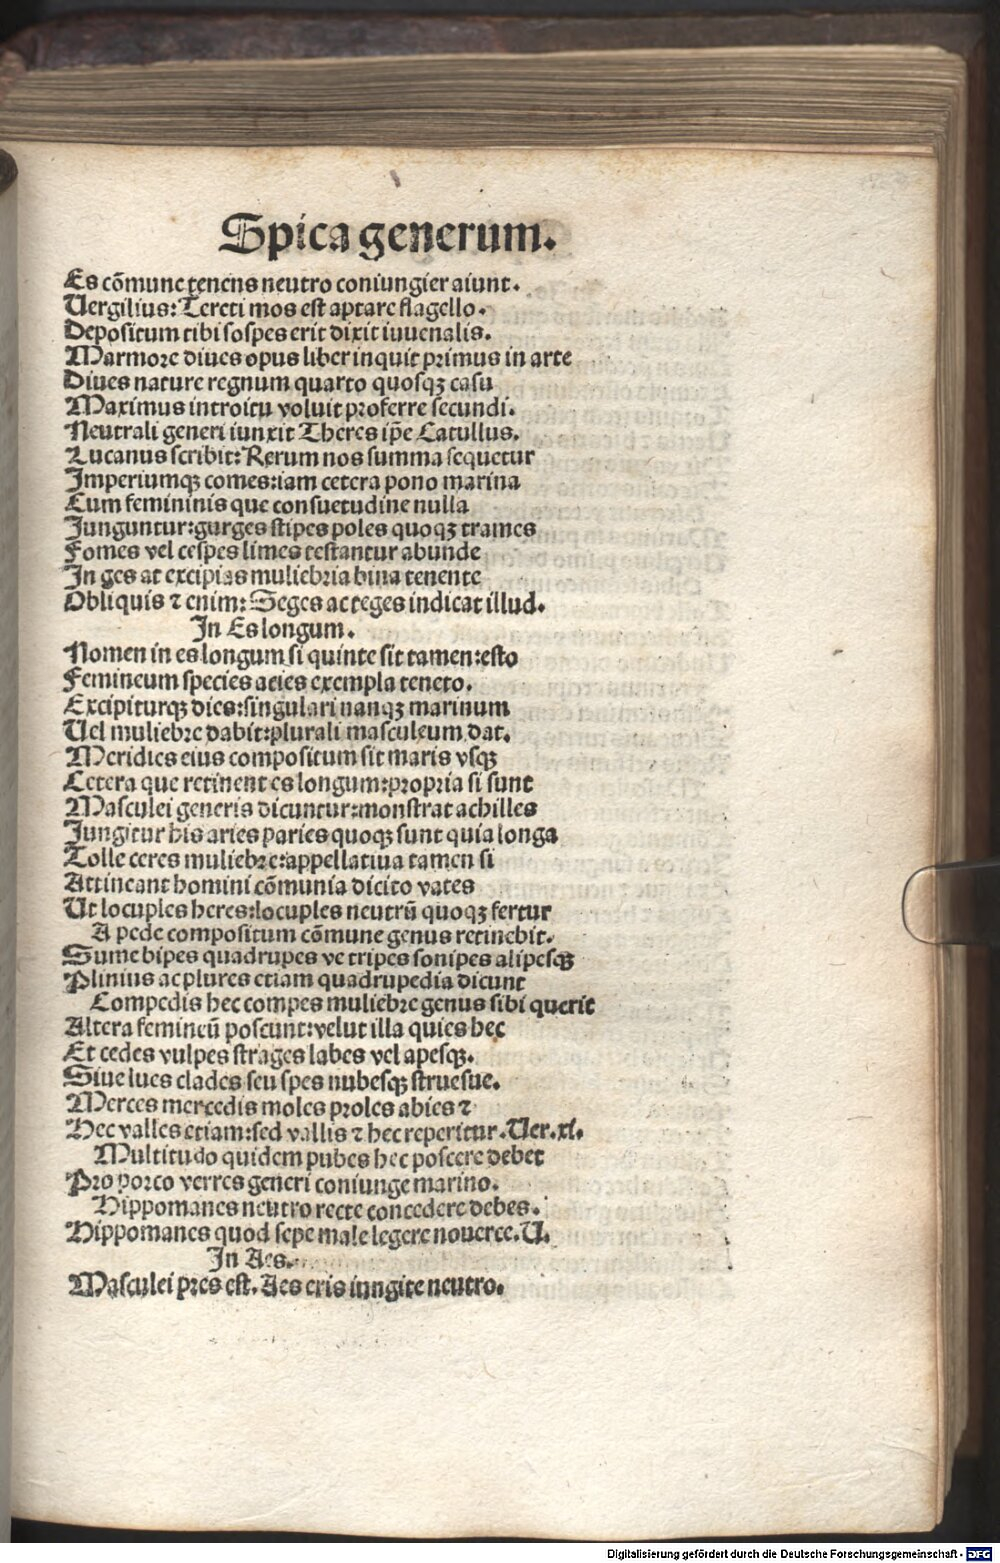 Spica generum.
Es cõmune tenens neutro coniungier aiunt.
Vergilius: Tereti mos est aptare flagello.
Depositum tibi sospes erit dixit iuuenalis.
Marmore diues opus liber inquit primus in arte
Diues nature regnum quarto quosqꝫ casu
Maximus introitu voluit proferre secundi.
Neutrali generi iunxit Theres ip̃e Catullus.
Lucanus scribit: Rerum nos summa sequetur
Imperiumqꝫ comes: iam cetera pono marina
Cum femininis que consuetudine nulla
Junguntur: gurges stipes poles quoqꝫ trames
Fomes vel cespes limes testantur abunde
In ges at excipias muliebria bina tenente
Obliquis ⁊ enim: Seges ac teges indicat illud.
In Es longum.
Nomen in es longum si quinte sit tamen: esto
Femineum species acies exempla teneto.
Excipiturqꝫ dies: singulari nanqꝫ marinum
Uel muliebre dabit: plurali masculeum dat.
Meridies eius compositum sit maris vsqꝫ
Cetera que retinent es longum: propria si sunt
Masculei generis dicuntur: monstrat achilles
Jungitur his aries paries quoqꝫ sunt quia longa
Tolle ceres muliebre: appellatiua tamen si
Attineant homini cõmunia dicito vates
Ut locuples heres: locuples neutrũ quoqꝫ fertur
A pede compositum cõmune genus retinebit.
Sume bipes quadrupes ve tripes sonipes alipesqꝫ
Plinius ac plures etiam quadrupedia dicunt
Compedis hec compes muliebre genus sibi querit
Altera femineũ poscunt: velut illa quies hec
Et cedes vulpes strages labes vel apesqꝫ.
Siue lues clades seu spes nubesqꝫ struesue.
Merces mercedis moles proles abies ⁊
Hec valles etiam: sed vallis ⁊ hec reperitur. Uer. xi.
Multitudo quidem pubes hec poscere debet
Pro porco verres generi coniunge marino.
Hippomanes neutro recte concedere debes.
Hippomanes quod sepe male legere nouerce. U.
In Aes.
Masculei pres est. Aes eris iungite neutro.
Digitalisierung gefördert durch die Deutsche Forschungsgemeinschaft - DFG